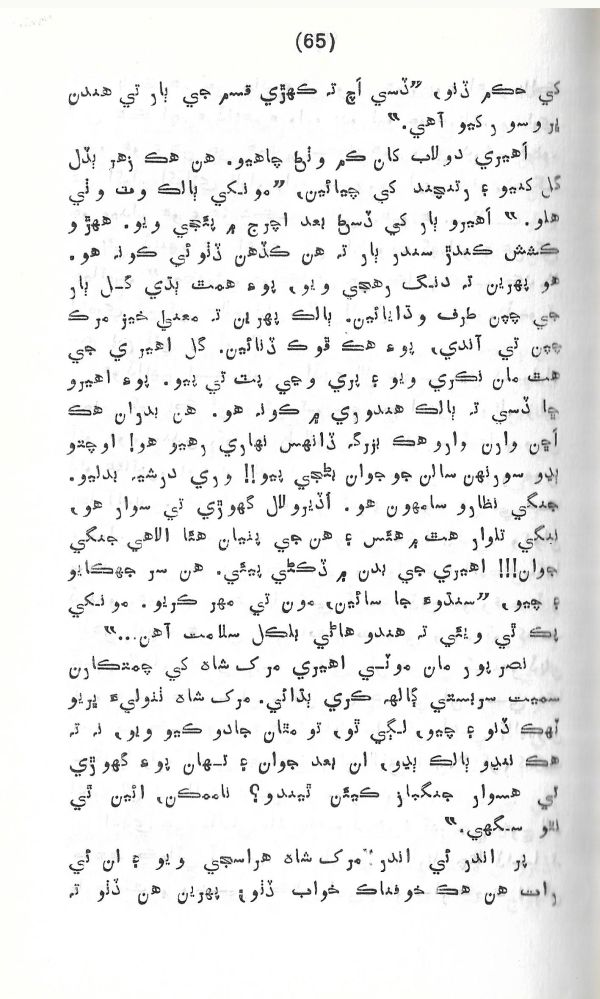 (65)
کي حڪم ڏنو، ”ڏسي اچ تہ ڪهڙي قسم جي ٻار تي هندن
ڀروسو رکيو آهي.“
اهيري دولاب کان ڪم وٺڻ چاهيو. هن هڪ زهر ٻڌل
گل کنيو ۽ رتنچند کي چيائين، ”مونکي ٻالڪ وٽ وٺي
هلو.“ اهيرو ٻار کي ڏسڻ بعد اچرج ۾ پئجي ويو. ههڙو
ڪشش ڪندڙ سندر ٻار تہ هن ڪڏهن ڏٺو ئي ڪونہ هو.
هو پهرين تہ دنگ رهجي ويو، پوءِ همت ٻڌي گل ٻار
جي چپن طرف وڌايائين. ٻالڪ پهرين تہ معنيٰ خيز مرڪ
چپن تي آندي، پوءِ هڪ ڦوڪ ڏنائين. گل اهيري جي
هٿ مان نڪري ويو ۽ پري وڃي پٽ تي پيو. پوءِ اهيرو
ڇا ڏسي تہ ٻالڪ هندوري ۾ ڪونہ هو. هن بدران هڪ
اڇن وارن وارو هڪ بزرگ ڏانهس نهاري رهيو هو! اوچتو
ٻڍو سورنهن سالن جو جوان بڻجي پيو!! وري درشيہ بدليو.
جنگي نظارو سامهون هو. اڏيرولال گهوڙي تي سوار هو،
ننگي تلوار هٿ ۾ هئس ۽ هن جي پٺيان هئا الاهي جنگي
جوان!!! اهيري جي بدن ۾ ڏڪڻي پيئي. هن سر جهڪايو
۽ چيو، ”سنڌوءَ جا سائين، مون تي مهر ڪريو. مونکي
پڪ ٿي ويئي تہ هندو هاڻي بلڪل سلامت آهن...“
نصرپور مان موٽي اهيري مرک شاه کي چمتڪارن
سميت سربستي ڳالهہ ڪري ٻڌائي. مرک شاه ٺٺوليءَ ڀريو
ٽهڪ ڏنو ۽ چيو، لڳي ٿو، تو مٿان جادو ڪيو ويو، نہ تہ
هڪ ننڍو ٻالڪ ٻڍو، ان بعد جوان ۽ تنهان پوءِ گهوڙي
تي هسوار جنگباز ڪيئن ٿيندو؟ ناممڪن، ائين ٿي
نٿو سگهي.“
پر اندر ئي اندر مرک شاه هراسجي ويو ۽ ان ئي
رات هن هڪ خوفناڪ خواب ڏٺو؛ پهرين هن ڏٺو تہ